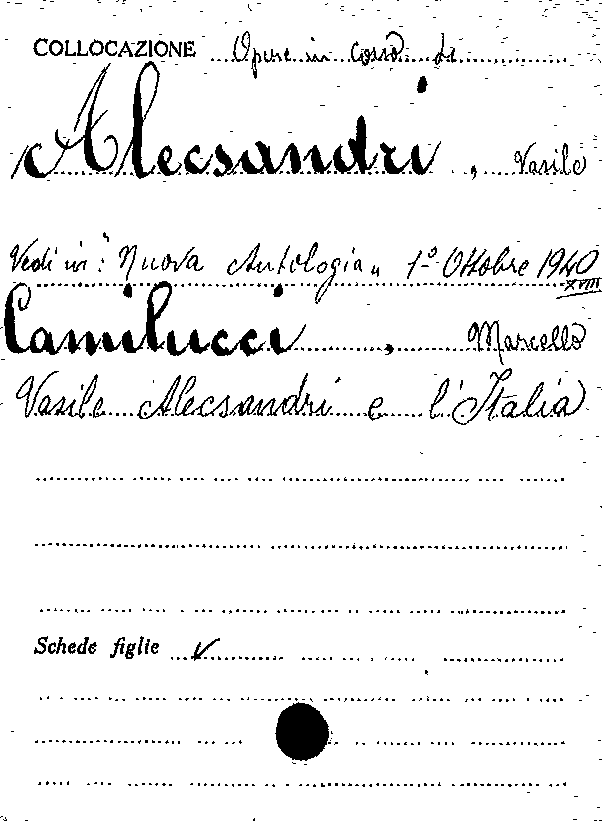 COLLOCAZIONE Opere in corso di
Alecsandri, Vasile
Vedi in: "Nuova Antologia" 1º Ottobre 1940
XVIII
Camilucci, Marcello
Vasile Alecsandri e l'Italia
Schede figlie ✓